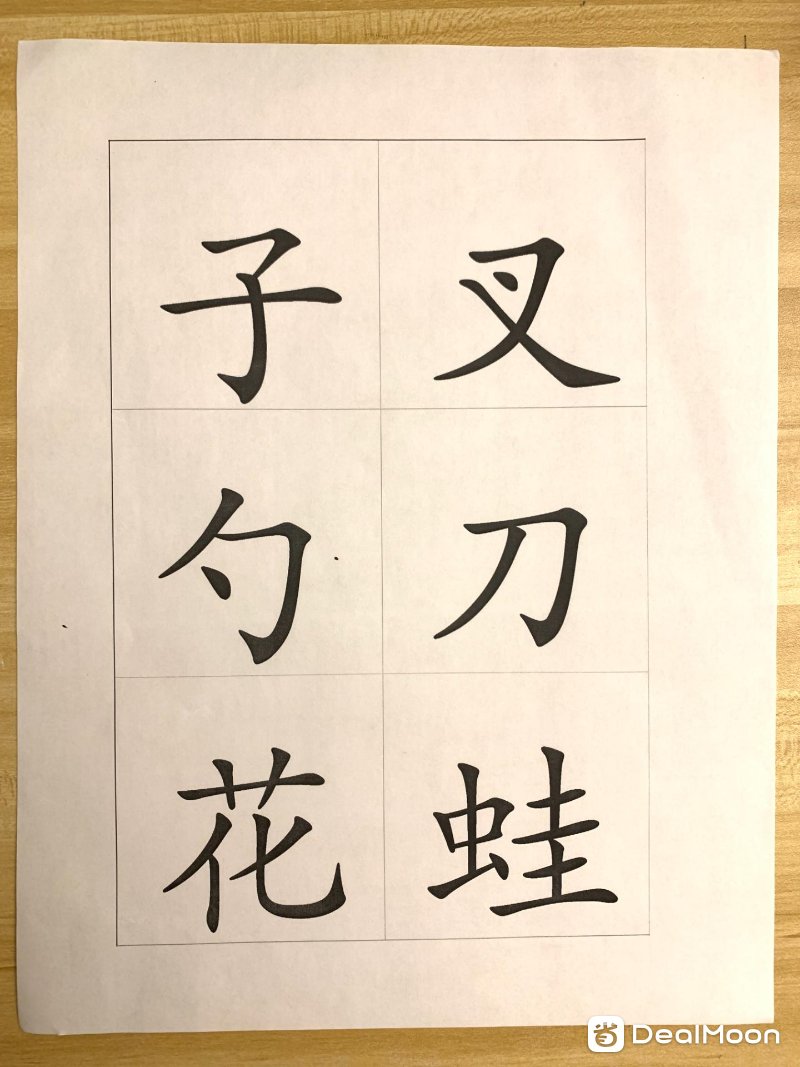 子 叉
勺 刀
花 蛙
DealMoon